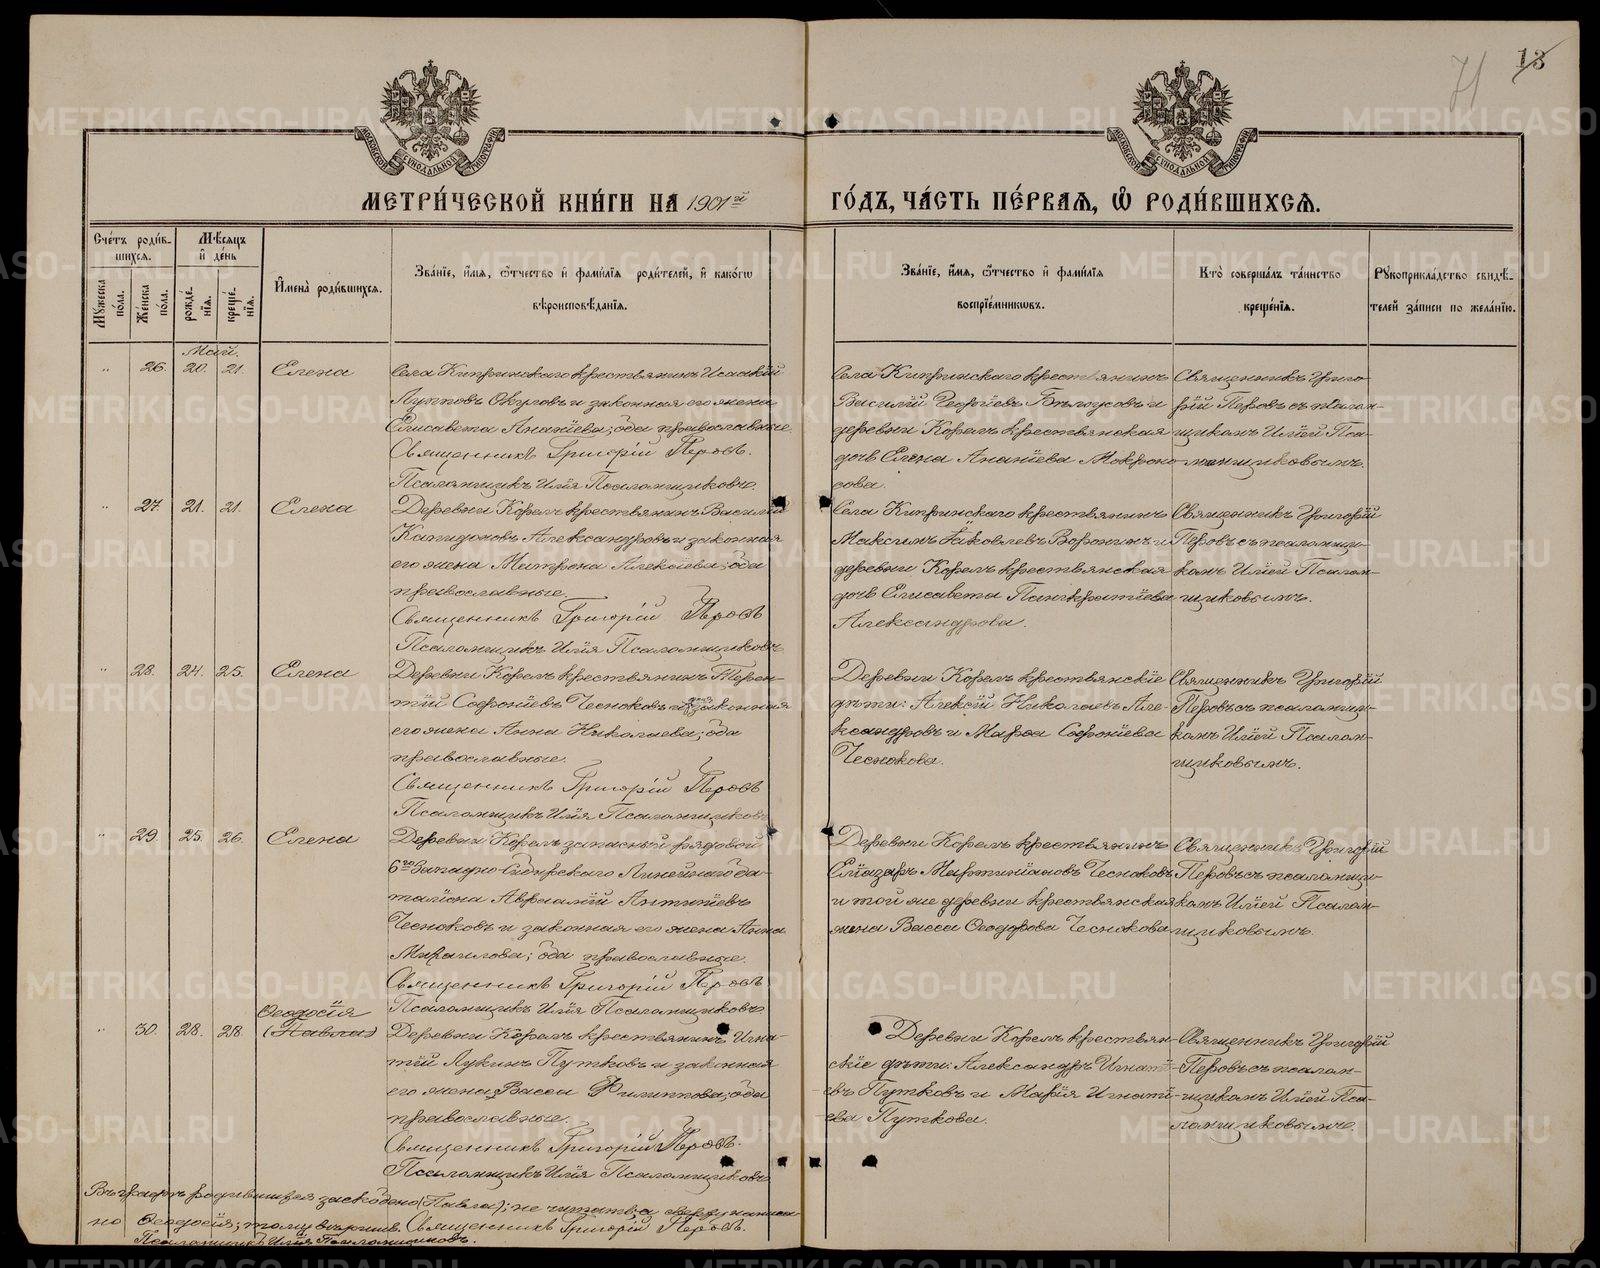 71
13
МОСКОВСКОЙ СѴНОДАЛЬНОЙ ТИПОГРАФІИ
МОСКОВСКОЙ СѴНОДАЛЬНОЙ ТИПОГРАФІИ
МЕТРИ́ЧЕСКОЙ КНИ́ГИ НА 1901й
ГО́ДЪ, ЧА́СТЬ ПЕ́РВАЯ, Ѽ РОДИ́ВШИХСЯ.
Сче́тъ роди́в-
шихся.
Мѣ́сяцъ
и҆ де́нь
Му́жеска пола.
Же́нска пола.
рожде́-
нїя.
креще́-
нїя.
И҆мена̀ роди́вшихся.
Зва́нїе, и҆́мя, ѻ҆́тчество и҆ фами́лїя роди́телей, и҆ како́гѡ
вѣроисповѣ́данїя.
Зва́нїе, и҆́мя, ѻ҆́тчество и҆ фами́лїя
воспрїе́мникѡвъ.
Кто̀ соверша́лъ та́инство
креще́нїя.
Рꙋкоприкла́дство свидѣ́-
телей за́писи по жела́нїю.
Май.
" 26. 20. 21. Елена
Села Кипринскаго крестьянинъ Исаакій
Лупповъ Окуловъ и законная его жена
Елисавета Ананіева; оба православные
Священникъ Григорій Перовъ.
Псаломщикъ Илія Псаломщиковъ.
Села Кипринскаго крестьянинъ
Василій Георгіевъ Бѣлоусовъ и
деревни Корелъ крестьянская
дочь Елена Ананіева Мокроно-
сова.
Священникъ Григо-
рій Перовъ съ псалом-
щикомъ Иліей Пса-
ломщиковымъ.
" 27. 21. 21. Елена
Деревни Корелъ крестьянинъ Василій
Капидоновъ Александровъ и законная
его жена Матрона Алексіева; оба
православные.
Священникъ Григорій Перовъ
Псаломщикъ Илія Псаломщиковъ
Села Кипринскаго крестьянинъ
Максимъ Іаковлевъ Воронинъ и
деревни Корелъ крестьянская
дочь Елисавета Панкратіева
Александрова.
Священникъ Григорій
Перовъ съ псаломщи-
комъ Иліей Псалом-
щиковымъ.
" 28. 24. 25. Елена
Деревни Корелъ крестьянинъ Терен-
тій Софроніевъ Чесноковъ и законная
его жена Анна Николаева; оба
православные.
Священникъ Григорій Перовъ
Псаломщикъ Илія Псаломщиковъ
Деревни Корелъ крестьянскіе
дѣти: Алексій Николаевъ Але-
ксандровъ и Марѳа Софроніева
Чеснокова.
Священникъ Григорій
Перовъ съ псаломщи-
комъ Иліей Псалом-
щиковымъ.
" 29. 25. 26. Елена
Деревни Корелъ запасный рядовой
6го Западно-Сибирскаго Линейнаго ба-
таліона Авраамій Антипіевъ
Чесноковъ и законная его жена Анна
Михаилова; оба православные.
Священникъ Григорій Перовъ
Псаломщикъ Илія Псаломщиковъ
Деревни Корелъ крестьянинъ
Еліазаръ Мартиніановъ Чесноковъ
и той же деревни крестьянская
жена Васса Ѳеодорова Чеснокова
Священникъ Григорій
Перовъ съ псаломщи-
комъ Иліей Псалом-
щиковымъ.
Ѳеодосія
" 30. 28. 28. (Павла)
Деревни Корелъ крестьянинъ Игна-
тій Лукинъ Путковъ и законная
его жена Васса Филиппова; оба
православные.
Священникъ Григорій Перовъ.
Псаломщикъ Илія Псаломщиковъ
Деревни Корелъ крестьян-
скіе дѣти: Александръ Игнаті-
евъ Путковъ и Марія Игнаті-
ева Путкова.
Священникъ Григорій
Перовъ съ псалом-
щикомъ Иліей Пса-
ломщиковымъ.
Въ графѣ родившихся заскоблено (Павла); не читать, а сверху написа-
но Ѳеодосія; тому вѣрить. Священникъ Григорій Перовъ.
Псаломщикъ Илія Псаломщиковъ.
METRIKI.GASO-URAL.RU